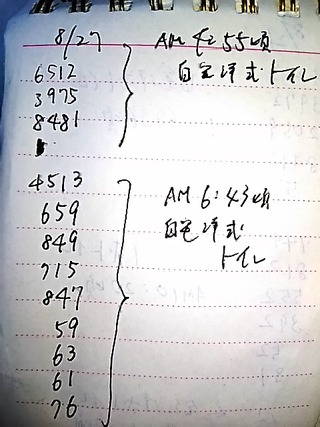 8/27
AM 4:55頃
自宅洋式トイレ
6512
3975
8481
AM 6:43頃
自宅洋式
トイレ
4513
659
849
715
847
59
63
61
76